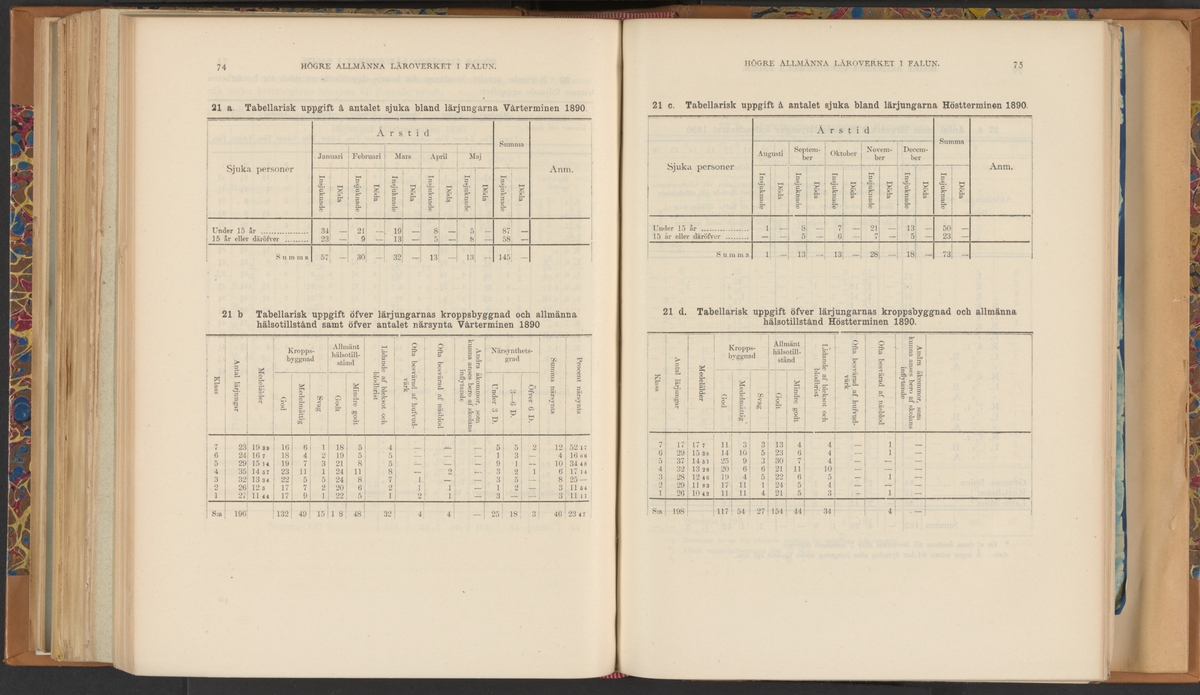 74
HÖGRE ALLMÄNNA LÄROVERKET I FALUN.
21 a Tabellarisk uppgift å antalet sjuka bland lärjungarna Vårterminen 1890.
Sjuka personer Årstid Summa Anm.
Januari Februari Mars April Maj
Insjuknade Döda Insjuknade Döda Insjuknade Döda Insjuknade Döda Insjuknade Döda Insjuknade Döda
Under 15 år ............... 34 — 21 — 19 — 8 — 5 — 87 —
15 år eller däröfver ......... 23 — 9 — 13 — 5 — 8 — 58 —
Summa 57 — 30 — 32 — 13 — 13 — 145 —
21 b Tabellarisk uppgift öfver lärjungarnas kroppsbyggnad och allmänna
hälsotillstånd samt öfver antalet närsynta Vårterminen 1890
Klass Antal lärjungar Medelålder Kroppsbyggnad Allmänt hälsotillstånd Lidande af bleksot och blodbrist Ofta besvärad af hufvudvärk Ofta besvärad af näsblod Andra åkommor, som kunna anses bero af skolans inflytande Närsynthetsgrad Summa närsynta Procent närsynta
God Medelmåttig Svag Godt Mindre godt Under 3 D. 3—6 D. Öfver 6 D.
7 23 16 6 1 18 5 4 — — — 5 5 2 12 52 17
6 24 16 7 18 4 2 19 5 5 — — — 1 3 — 4 16 66
5 29 15 14 19 7 3 21 8 5 — — — 9 1 — 10 34 48
4 35 14 57 23 11 1 24 11 8 — 2 — 3 2 1 6 17 14
3 32 13 24 22 5 5 24 8 7 1 — — 3 5 — 8 25 —
2 26 12 5 17 7 2 20 6 2 1 1 — 1 2 — 3 11 54
1 27 11 44 17 9 1 22 5 1 2 1 — 3 — — 3 11 11
S:a 196 132 49 15 1 8 48 32 4 4 — 25 18 3 46 23 47
HÖGRE ALLMÄNNA LÄROVERKET I FALUN.
75
21 c. Tabellarisk uppgift å antalet sjuka bland lärjungarna Höstterminen 1890.
Sjuka personer Årstid Summa Anm.
Augusti September Oktober November December
Insjuknade Döda Insjuknade Döda Insjuknade Döda Insjuknade Döda Insjuknade Döda Insjuknade Döda
Under 15 år .................. 1 — 8 — 7 — 21 — 13 — 50 —
15 år eller däröfver ......... — — 5 — 6 — 7 — 5 — 23 —
Summa 1 — 13 — 13 — 28 — 18 — 73 —
21 d. Tabellarisk uppgift öfver lärjungarnas kroppsbyggnad och allmänna
hälsotillstånd Höstterminen 1890.
Klass Antal lärjungar Medelålder Kroppsbyggnad Allmänt hälsotillstånd Lidande af bleksot och blodbrist Ofta besvärad af hufvudvärk Ofta besvärad af näsblod Andra åkommor, som kunna anses bero af skolans inflytande
God Medelmåttig Svag Godt Mindre godt
7 17 17 7 11 3 3 13 4 4 — 1 —
6 29 14 10 5 23 6 4 — 1 —
5 37 14 51 25 9 3 30 7 4 — — —
4 32 13 28 20 6 6 21 11 10 — — —
3 28 12 46 19 4 5 22 6 5 — 1 —
2 29 11 83 17 11 1 24 5 4 — — —
1 26 10 42 11 11 4 21 5 3 — 1 —
S:a 198 117 54 27 154 44 34 4 —